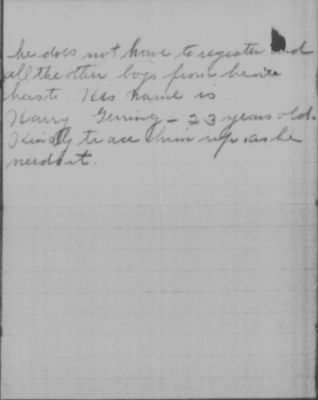 he does not have to register and
all the other boys from here
has to His name is
Harry Gering - 23 years old.
Kindly trace him up, as he
needs it.